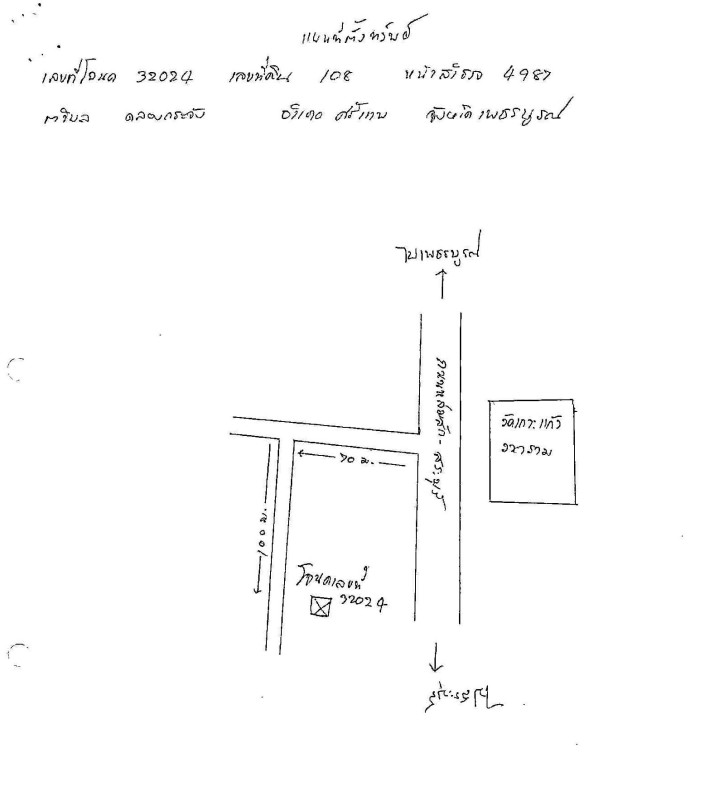 แผนที่ตั้งทรัพย์
เลขที่โฉนด 32024 เลขที่ดิน 108 หน้าสำรวจ 4987
ตำบล คลองกระจัง อำเภอ ศรีเทพ จังหวัด เพชรบูรณ์
ไปเพชรบูรณ์
ถนนหล่มสัก - สระบุรี
วัดเกาะแก้ว
วนาราม
70 ม.
100 ม.
โฉนดเลขที่
32024
ไปสระบุรี